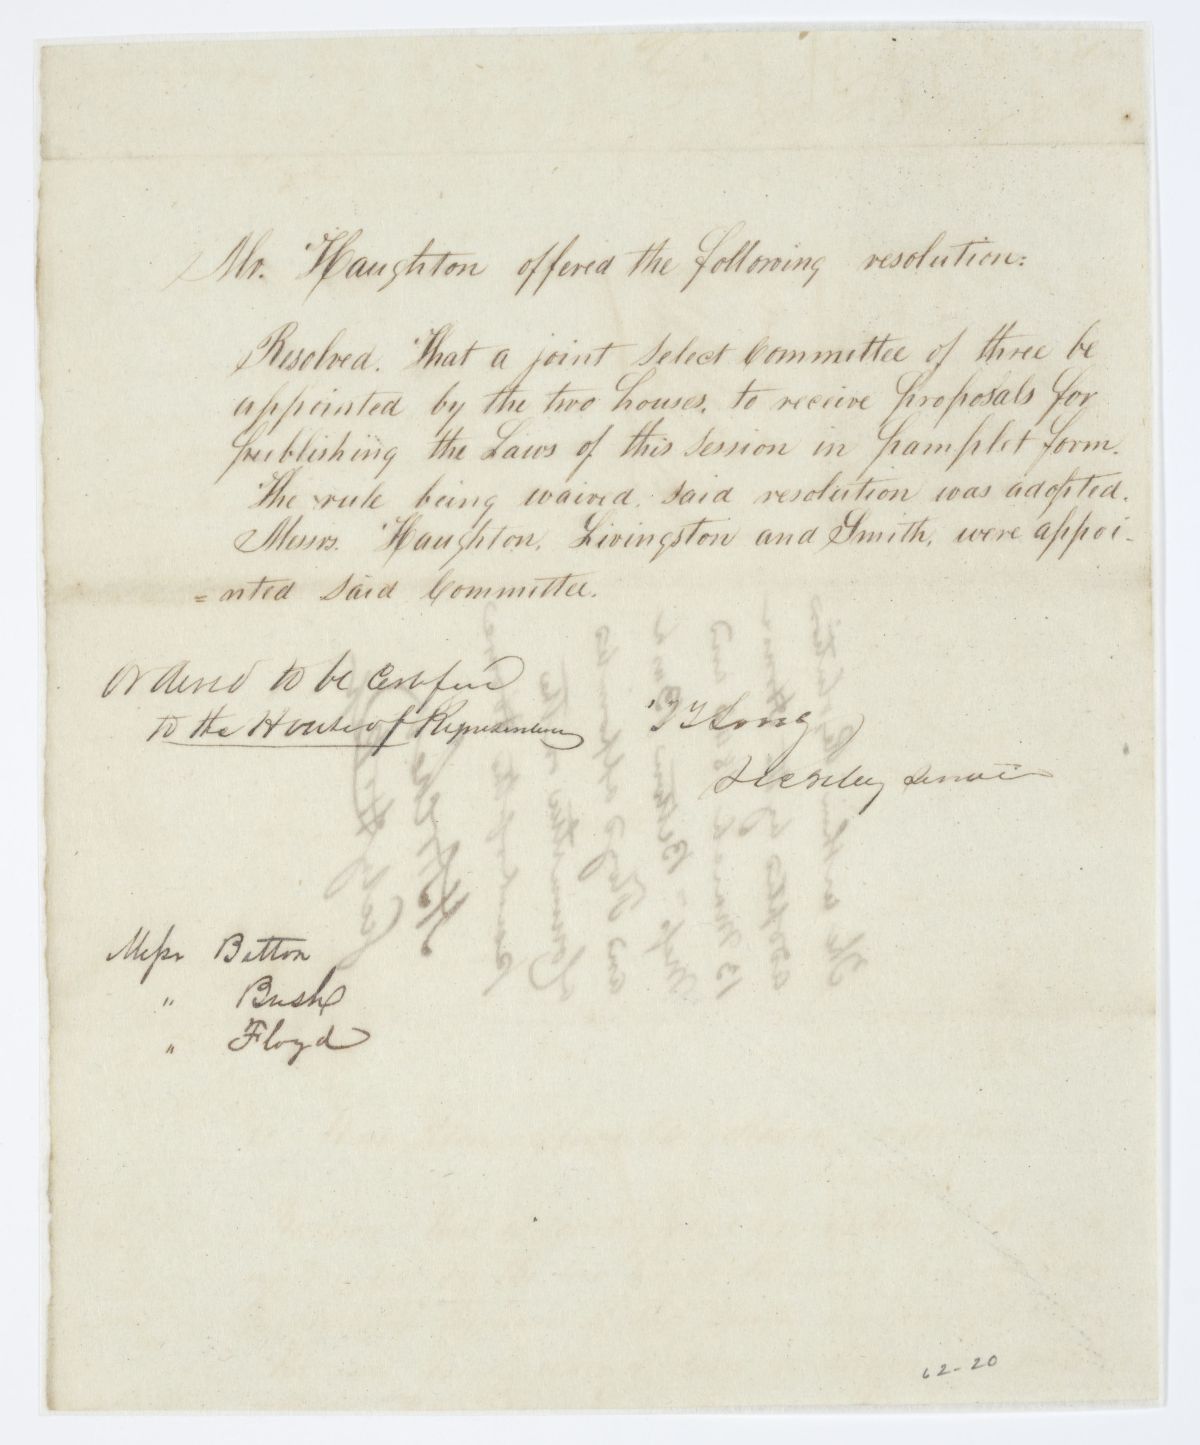 Mr. Haughton offered the following resolution:
Resolved. That a joint select Committee of three be
appointed by the two houses, to receive proposals for
publishing the Laws of this session in pamplet form.
The rule being waived, said resolution was adopted.
Messrs. Haughton, Livingston and Smith, were appoi-
=nted said Committee.
Ordered to be
to the House of Representatives
Long
Messr Betton
" Bush
" Floyd
62-20